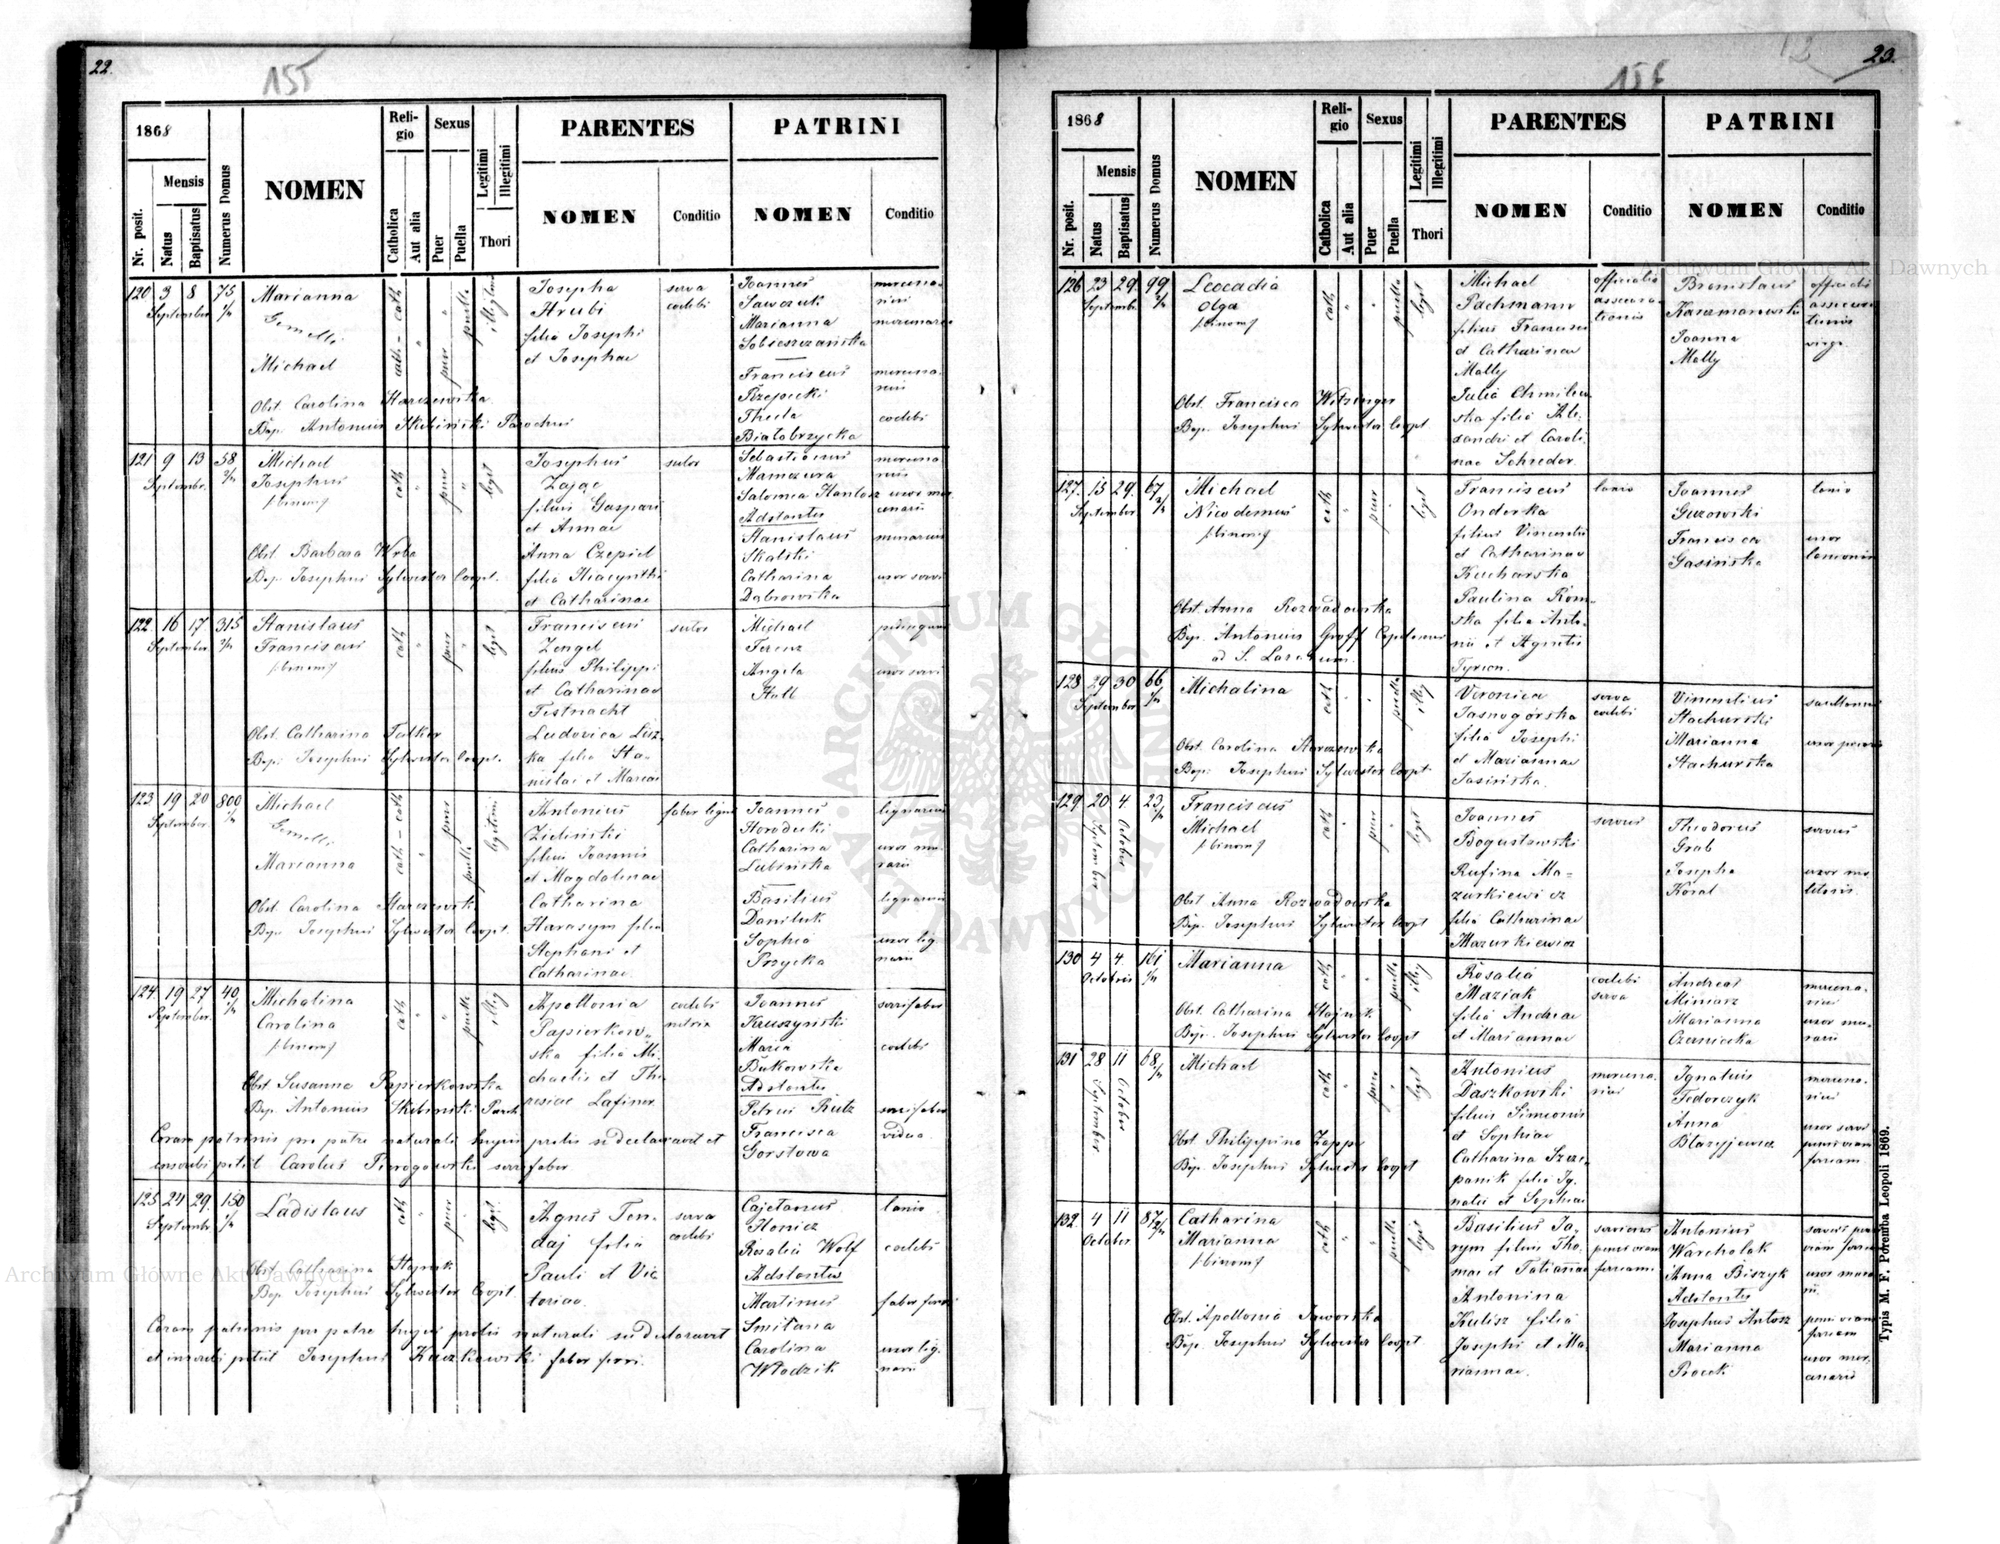 22.
155
1868
Mensis
Nr. posit.
Natus
Baptisatus
Numerus Domus
NOMEN
Religio
Catholica
Aut alia
Sexus
Puer
Puella
Legitimi
Illegitimi
Thori
PARENTES
NOMEN
Conditio
PATRINI
NOMEN
Conditio
120 3 8 75
September
Marianna
Gemelli
Michael
Obst. Carolina Starczewska
Bap. Antonius Skibiński Parochus
cath - cath
puer
puella
Josepha
Hrubi
filia Josephi
et Josephae
serva
coelebs
Joannes
Sawczuk
Marianna
Sobieszczańska
Franciscus
Rzepecki
Thecla
Białobrzycka
121 9 13 58
September
Michael
Josephus
/:binom:/
Obst. Barbara Wrba
Bap. Josephus Sylwester Coopt.
cath
puer
legit
Josephus
Zając
filius Gaspari
et Annae
Anna Czepiel
filia Hiacynthi
et Catharinae
sutor
Sebastianus
Mamczura
Salomea
Adstantes
Stanislaus
Skalski
Catharina
Dąbrowska
uxor servi
122 16 17 315
September
Stanislaus
Franciscus
/:binom:/
Obst. Catharina Falker
Bap. Josephus Sylwester Coopt.
cath
puer
legit
Franciscus
Zengel
filius Philippi
et Catharinae
Festnacht
Ludovica Lisz-
ka filia Sta-
nislai et Mariae
sutor
Michael
Ferenz
Angela
Hall
uxor servi
123 19 20 800
September
Michael
Gemelli
Marianna
Obst. Carolina Starczewska
Bap. Josephus Sylwester Coopt.
cath - cath
puer
puella
legitimi
Antonius
Zieliński
filius Joannis
et Magdalenae
Catharina
Harasym filia
Stephani et
Catharinae
faber lign
Joannes
Horodecki
Catharina
Lubińska
Basilius
Daniluk
Sophia
Przycka
lignarius
uxor mu-
rarii
lignarius
uxor lig-
narii
124 19 27 40
September
Michalina
Carolina
/:binom:/
Obst. Susanna Papierkowska
Bap. Antonius Skibinski Paroch
cath
puella
illeg
Apollonia
Papierkow-
ska filia Mi-
chaelis et The
resiae Lafiner
coelebs
Joannes
Kruszyński
Maria
Bukowska
Adstantes
Petrus Rutz
Francisca
Gorstowa
serrifaber
coelebs
serrifaber
vidua
Coram patrinis pro patre naturali hujus prolis se declaravit et
inscribi petiit Carolus Pierogowski serrifaber
125 24 29 150
September
Ladislaus
Obst. Catharina Stajnik
Bap. Josephus Sylwester Coopt.
cath
puer
legit.
Agnes Ton-
daj filia
Pauli et Vic
toriae
serva
coelebs
Cajetanus
Honicz
Rosalia Wolf
Adstantes
Martinus
Smitana
Carolina
Włodzik
lanio
coelebs
faber ferri
uxor lig-
narii
Coram patrinis pro patre hujus prolis naturali se declaravit
et inscribi petiit Josephus Kaczkowski faber ferri.
23.
156
1868
Mensis
Nr. posit.
Natus
Baptisatus
Numerus Domus
NOMEN
Religio
Catholica
Aut alia
Sexus
Puer
Puella
Legitimi
Illegitimi
Thori
PARENTES
NOMEN
Conditio
PATRINI
NOMEN
Conditio
126 23 29 99
September
Leocadia
Olga
/:binom:/
Obst. Francisca Witzinger
Bap. Josephus Sylwester Coopt.
cath
puella
legit
Michael
Pachmann
filius Francisci
et Catharinae
Mally
Julia Chmilew
ska filia Ale-
xandri et Caroli-
nae Schreder
officialis
assecura-
tionis
Bronislaus
Kaczmarowski
Joanna
Mally
virgo
127. 15 29. 67
September
Michael
Nicodemus
/:binom:/
Obst. Anna Rozwadowska
Bap. Antonius Groff Capelanus
ad S. Lazarum.
cath
puer
legit
Franciscus
Onderka
filius Vincentii
et Catharinae
Kucharska
Paulina Rom-
ska filia Anto-
nii et Agnetis
Tyrcon.
lanio
Joannes
Guzowski
Francisca
Gasińska
lanio
uxor
128 29 30 66
September
Michalina
Obst. Carolina Starczewska
Bap. Josephus Sylwester Coopt
cath
puella
illeg
Veronica
Jasnogórska
filia Josephi
et Mariannae
Jasińska.
serva
coelebs
Vincentius
Stachurski
Marianna
Stachurska
129. 20 4 23
September
October
Franciscus
Michael
/:binom:/
Obst. Anna Rozwadowska
Bap. Josephus Sylwester Coopt
cath
puer
legit
Joannes
Bogusławski
Rufina Ma-
zurkiewicz
filia Catharinae
Mazurkiewicz
servus
Theodorus
Grab
Josepha
Koral
servus
uxor mi-
litaris.
130 4 4 161
Octobris
Marianna
Obst. Catharina Stajnik
Bap. Josephus Sylwester Coopt
cath
puella
illeg
Rosalia
Maziak
filia Andreae
et Mariannae
coelebs
serva
Andreas
Miniarz
Marianna
Czernicka
uxor mu-
rarii
131 28 11 68
September
October
Michael
Obst. Philippina Zappe
Bap. Josephus Sylwester Coopt
cath
puer
legit
Antonius
Daszkowski
filius Simeonis
et Sophiae
Catharina Szcze-
panik filia Ig-
natii et Sophiae
mercena-
rius
Ignatius
Fedorczyk
Anna
Blazyjewicz
mercena-
rius
uxor servi
132. 4 11 87
October
Catharina
Marianna
/:binom:/
Obst. Apollonia Jaworska
Bap. Josephus Sylwester Coopt
cath
puella
legit
Basilius Ja-
rym filius Tho-
mae et Tatiannae
Antonina
Kulisz filia
Josephi et Ma-
riannae.
Antonius
Warcholak
Anna Biszyk
Adstantes
Josephus Antosz
Marianna
Procek
uxor mer-
cenarii
Typis M. F. Poremba Leopoli 1869.
Archiwum Główne Akt Dawnych
Archiwum Główne Akt Dawnych
ARCHIWUM GŁÓWNE AKT DAWNYCH